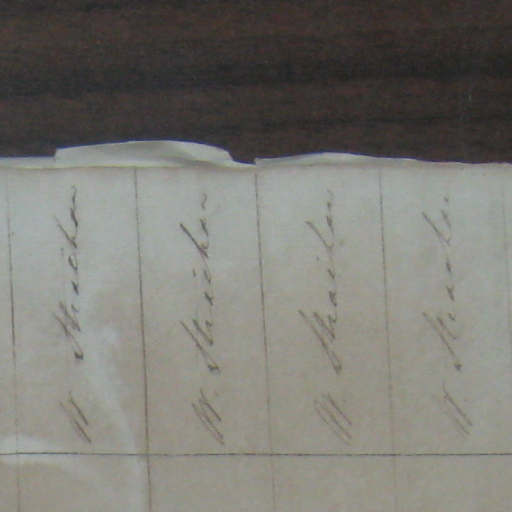 W Strachan
W. Strachan
W Strachan
W. Strachan